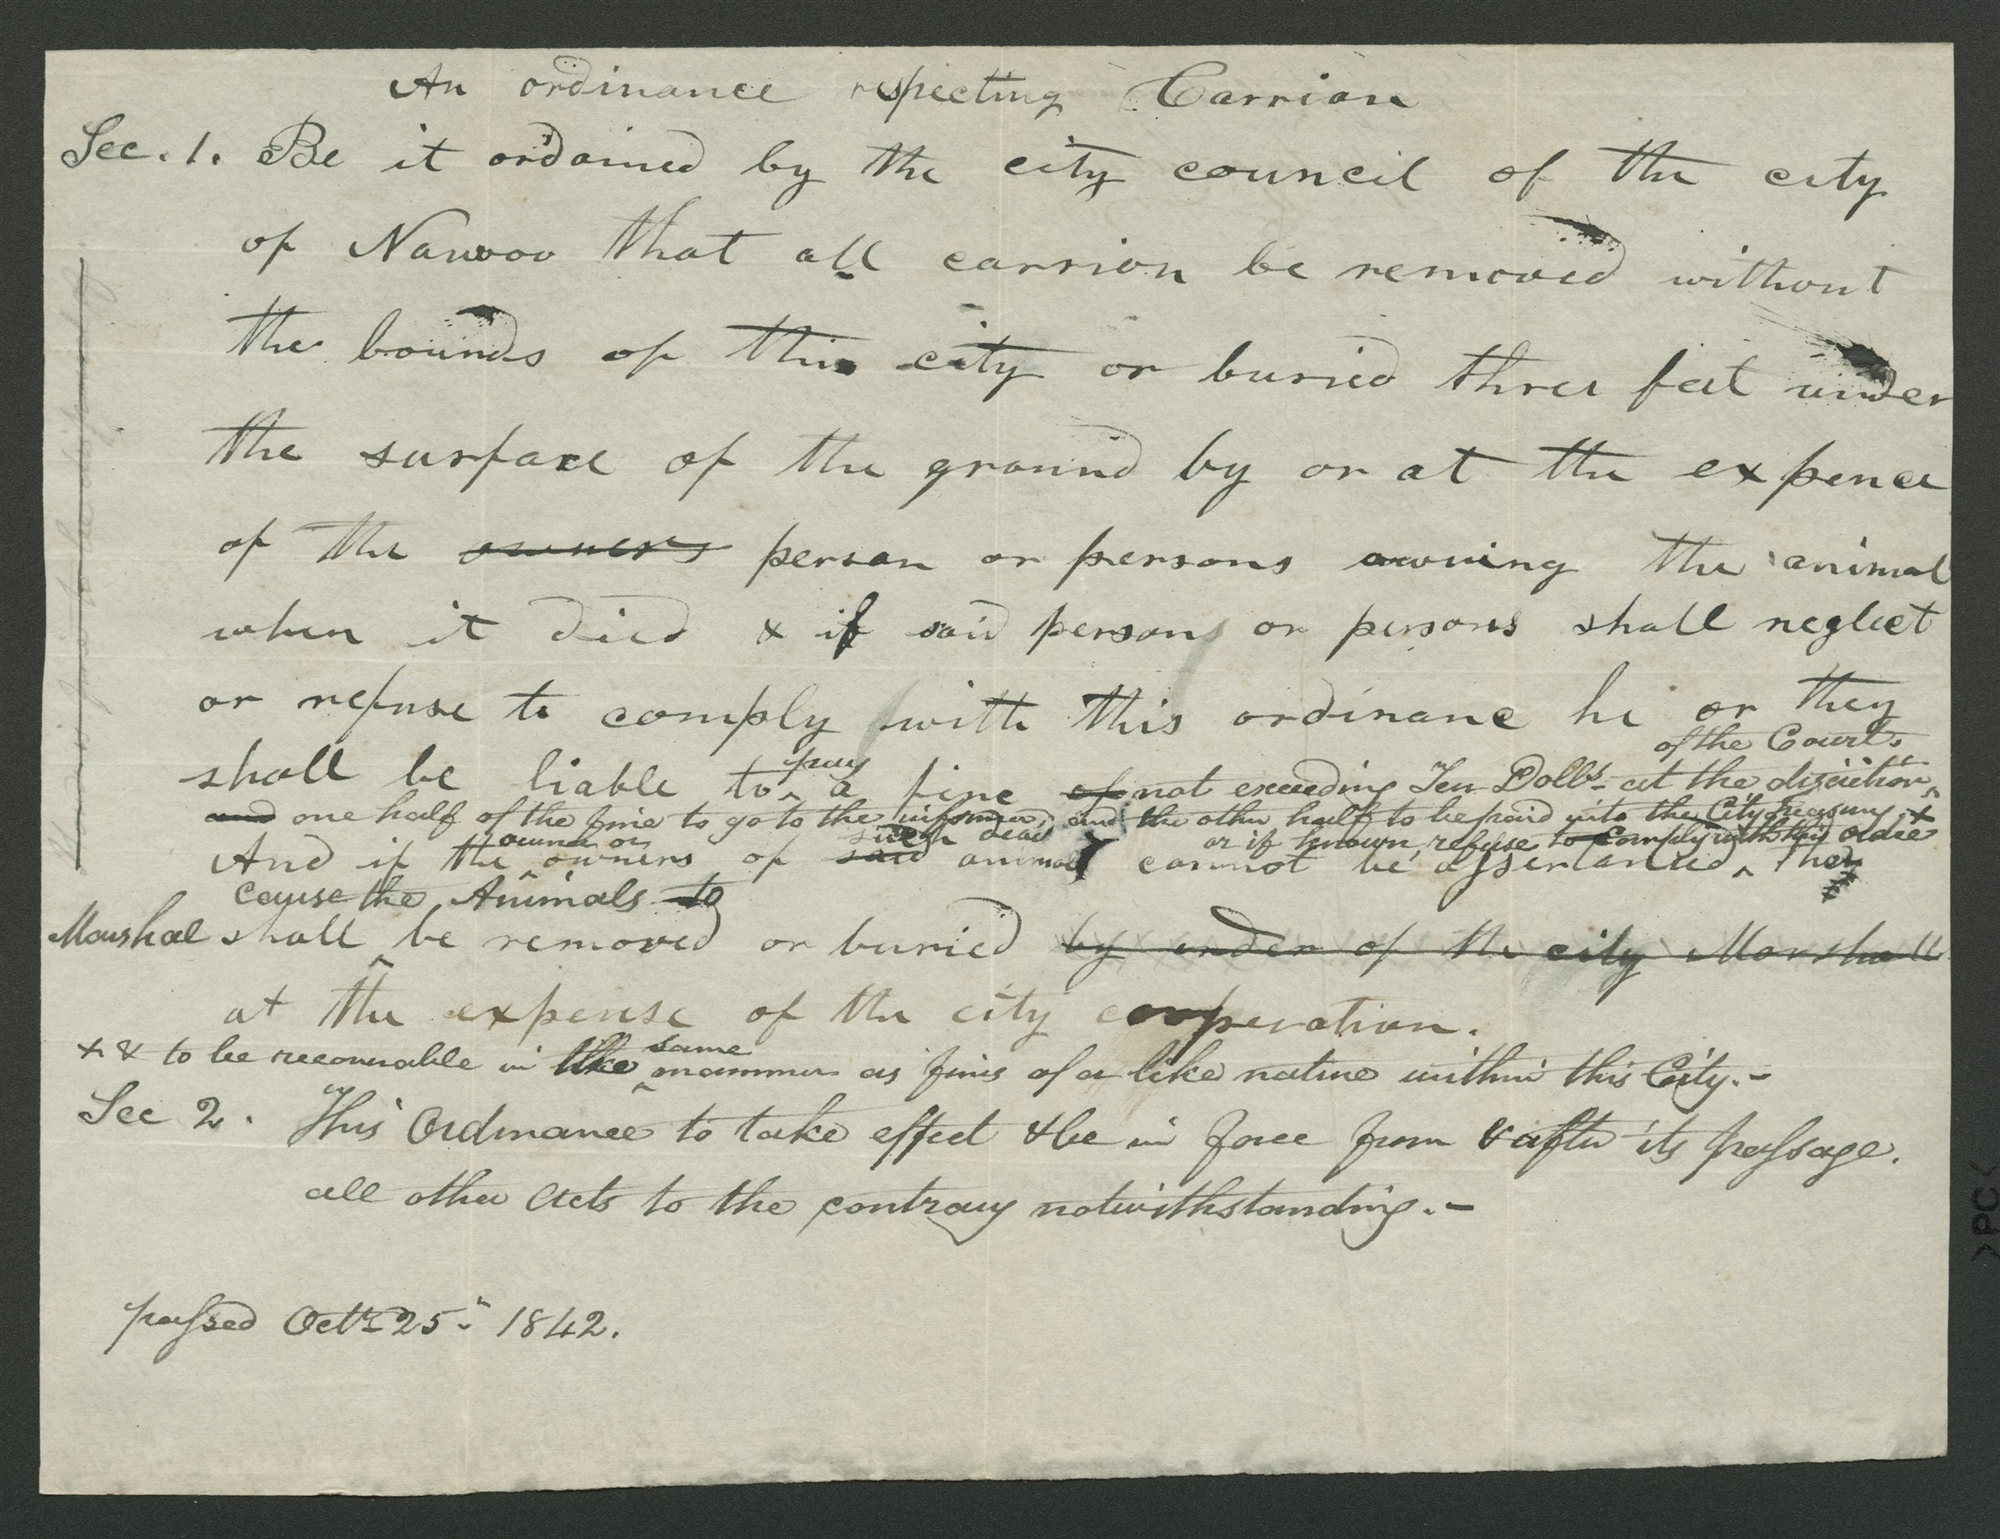 An ordinance respecting Carrion
Sec. 1. Be it ordained by the city council of the city
of Nauvoo that all carrion be removed without
the bounds of this city or buried three feet under
the surface of the ground by or at the expence
of the owners person or persons owning the animal
when it died & if said person or persons shall neglect
or refuse to comply with this ordinanc he or they
of the Court,
shall be liable to pay a fine of not exceeding Ten Dolls- at the discretion
and one half of the fine to go to the informer, and the other half to be paid into the City Treasury, +
owner or such dead or if known, refuse to comply with this order
And if the owners of said animal cannot be assertained, the
cause the Animals to
Marshal shall be removed or buried by order of the city Marshall
at the expense of the city corperation.
+ & to be recoverable in like same manner as fines of a like nature within this City.-
Sec 2. This Ordinance to take effect & be in force from & after its passage.
all other Acts to the contrary notwithstanding.-
passed Octr. 25th 1842.